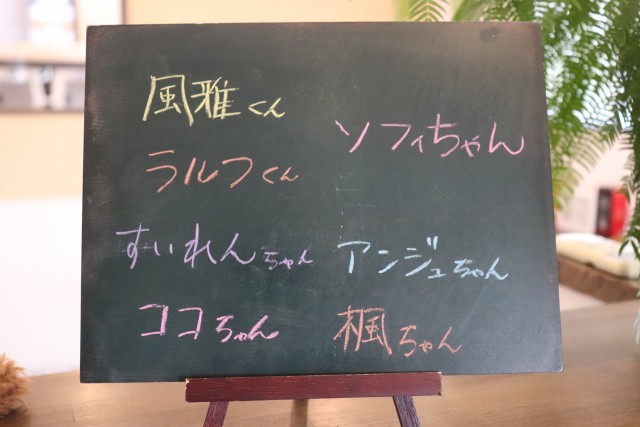 風雅くん
ラルフくん
すいれんちゃん
ココちゃん
ソフィちゃん
アンジュちゃん
楓ちゃん